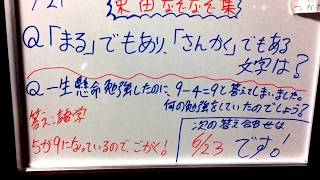 Q「まる」でもあり、「さんかく」でもある
文字は?
Q一生懸命勉強したのに、9-4=9と答えてしまいました。
何の勉強をしていたのでしょう?
答え:語学
5が9になっているので、ごがく!
次の答え合わせは
6/23 です!